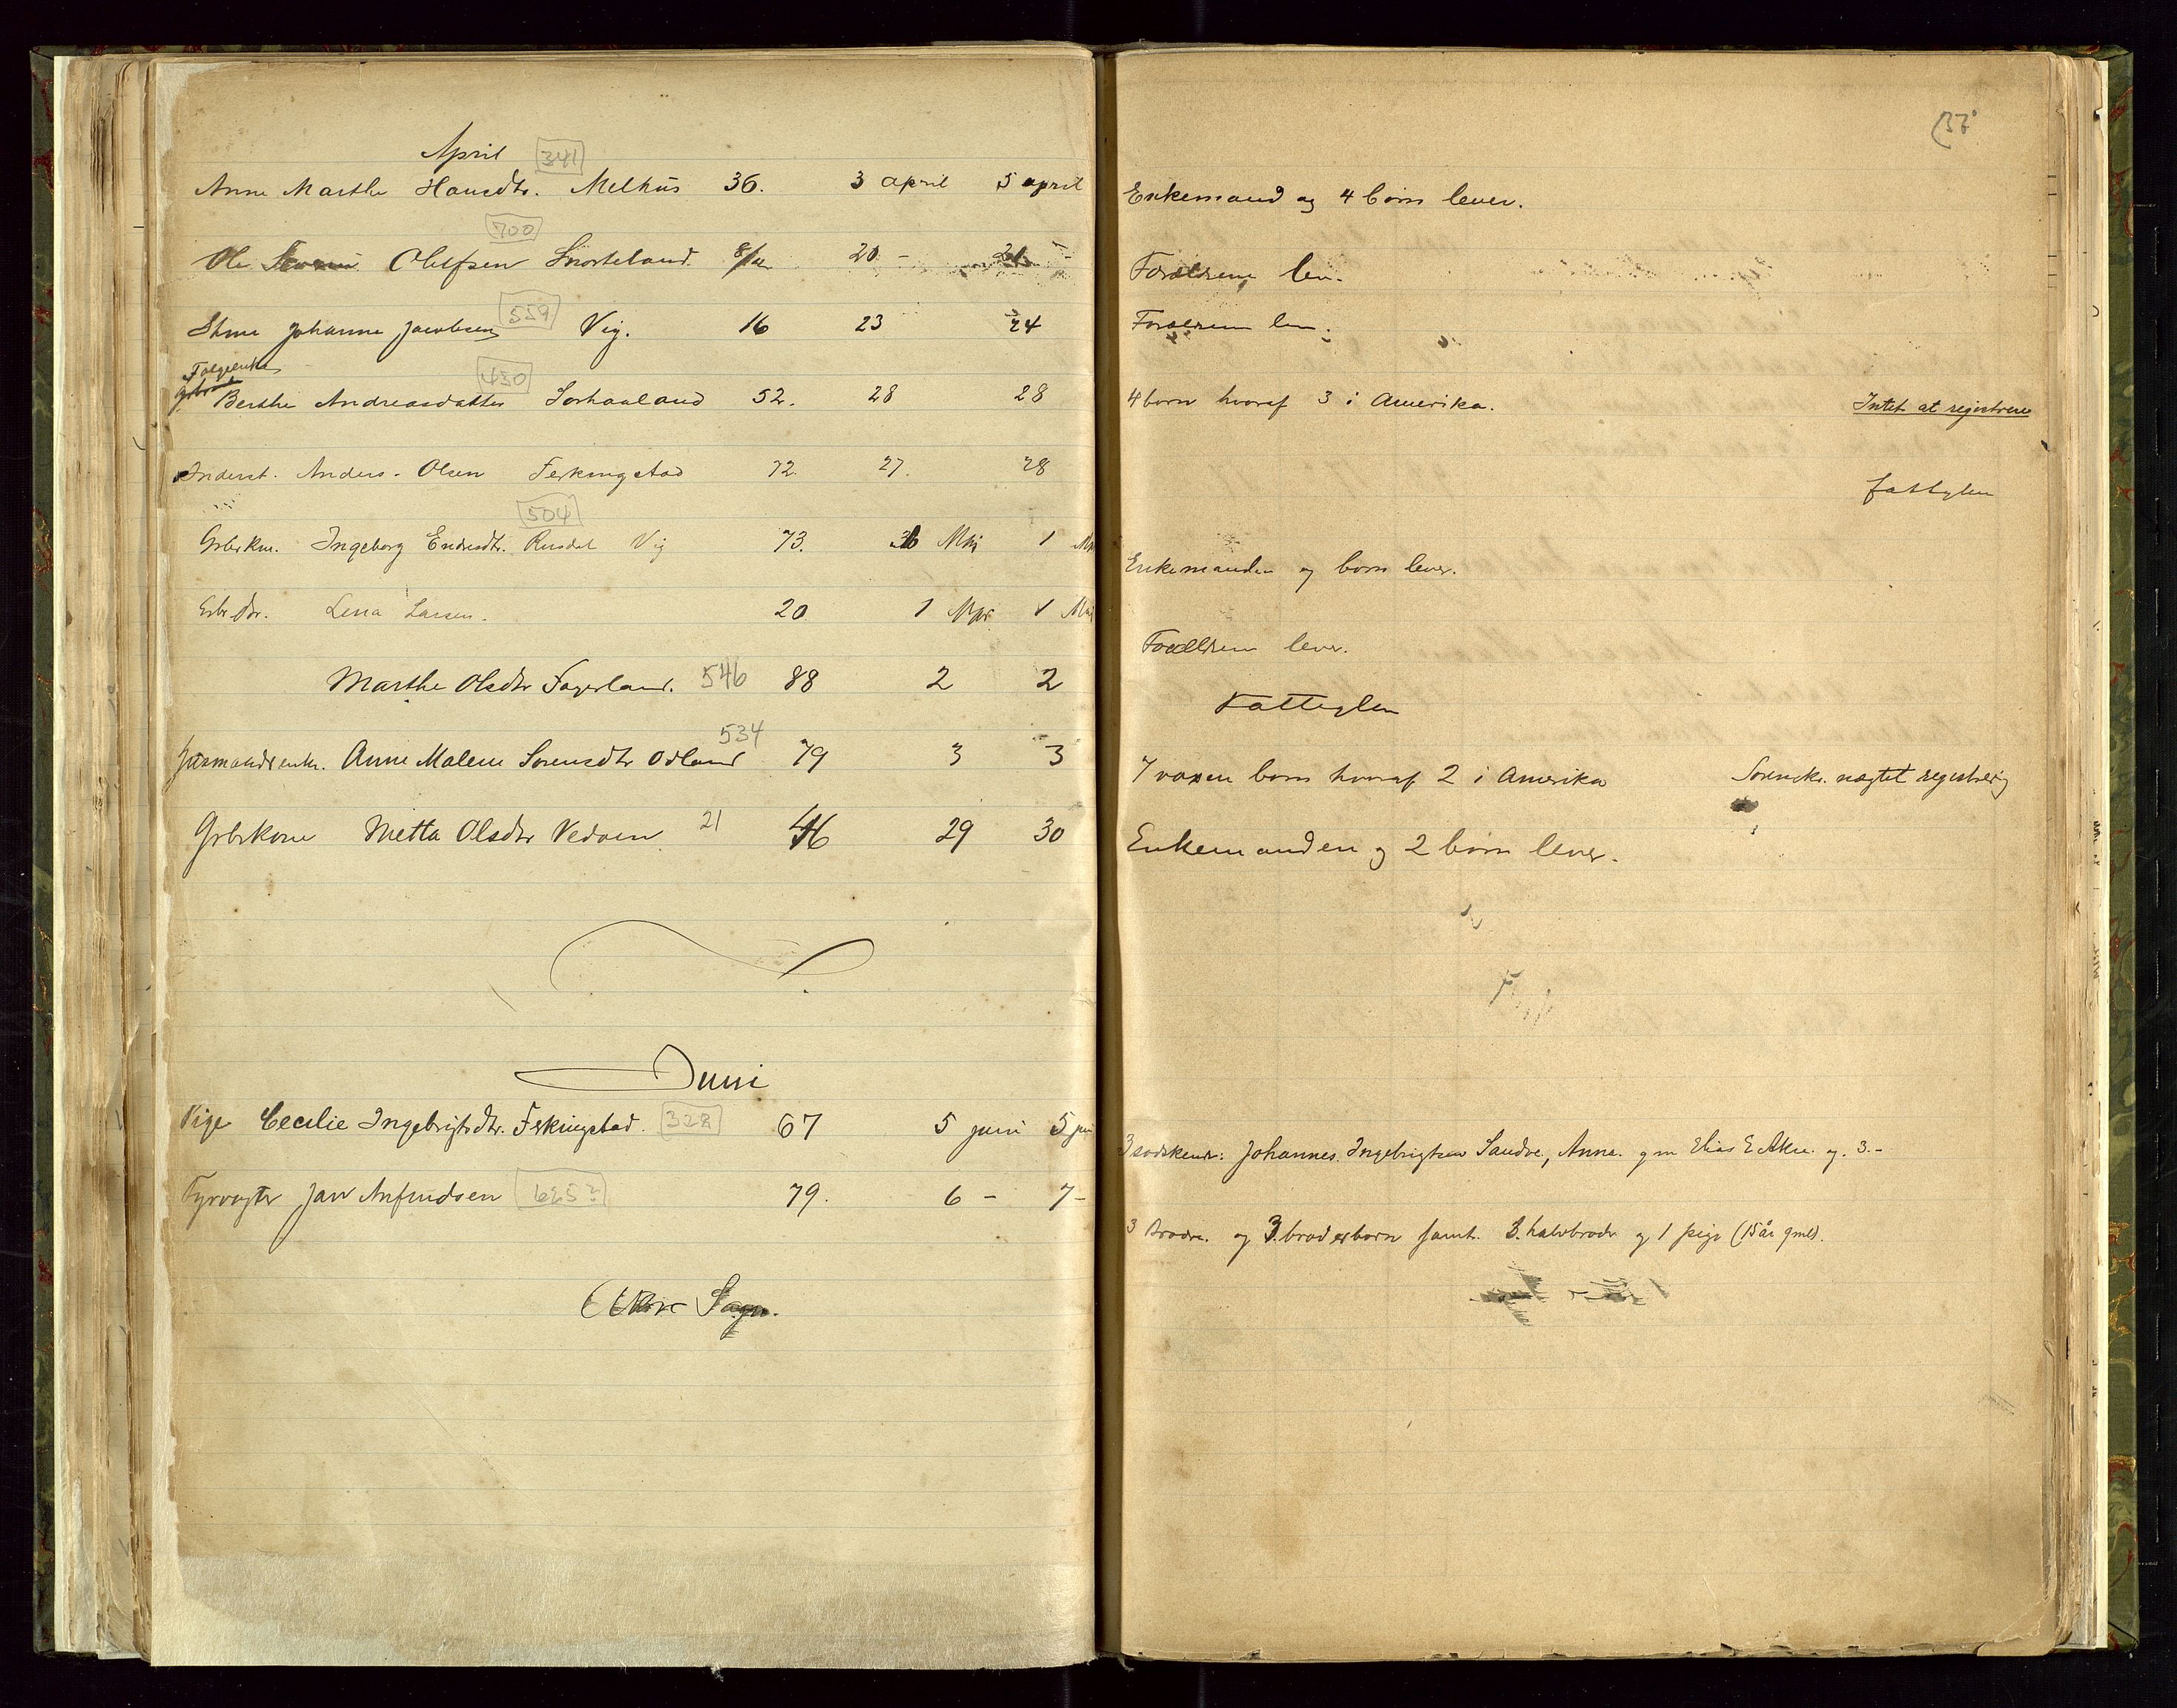 April
341
Anne Marthe Hansdtr. Melhus 36. 3 april 5 april
700
Ole Olufsen Snorteland. 20 - 21 -
559
Johanne Jacobsen Vig. 16 23 24
Folgeenke
450
Berthe Andreasdatter Sorhaaland 52. 28 28
Inderst. Anders Olsen Ferkingstad 72. 27. 28
504
Grbrkn. Ingeborg Endresdtr. Vig 73. Mai 1
Lena Larsen. 20 1 1 Mai
Marthe Olsdtr Fagerland. 546 88 2 2
534
Anne Malene Sorensdtr Odland 79 3 3
Grbrkone Metta Olsdtr Vedoen 21 46 29 30
Juni
Pige Cecilie Ingebrigtsdtr. Ferkingstad. 328 67 5 juni 5 juni
Fyrvogter Jan Anfindsen 79. 6 - 7 -
Sogn.
37
Enkemand og 4 born lever.
Foraeldrene lev.
Foraeldrene lev.
4 born hvoraf 3 i Amerika. Intet at registrere
fattiglem
Enkemanden og born lever.
Foraeldrene lever.
Fattiglem
7 voxen born hvoraf 2 i Amerika Sorensk. nægtet registrerig
Enkemanden og 2 born lever.
3 sodskende: Johannes Ingebrigtsen Sandve, Anna. gm Elias E og. 3.-
3 brodre. og 3. broderborn samt. 3. halvbrodr og 1 pige (15 år gml).